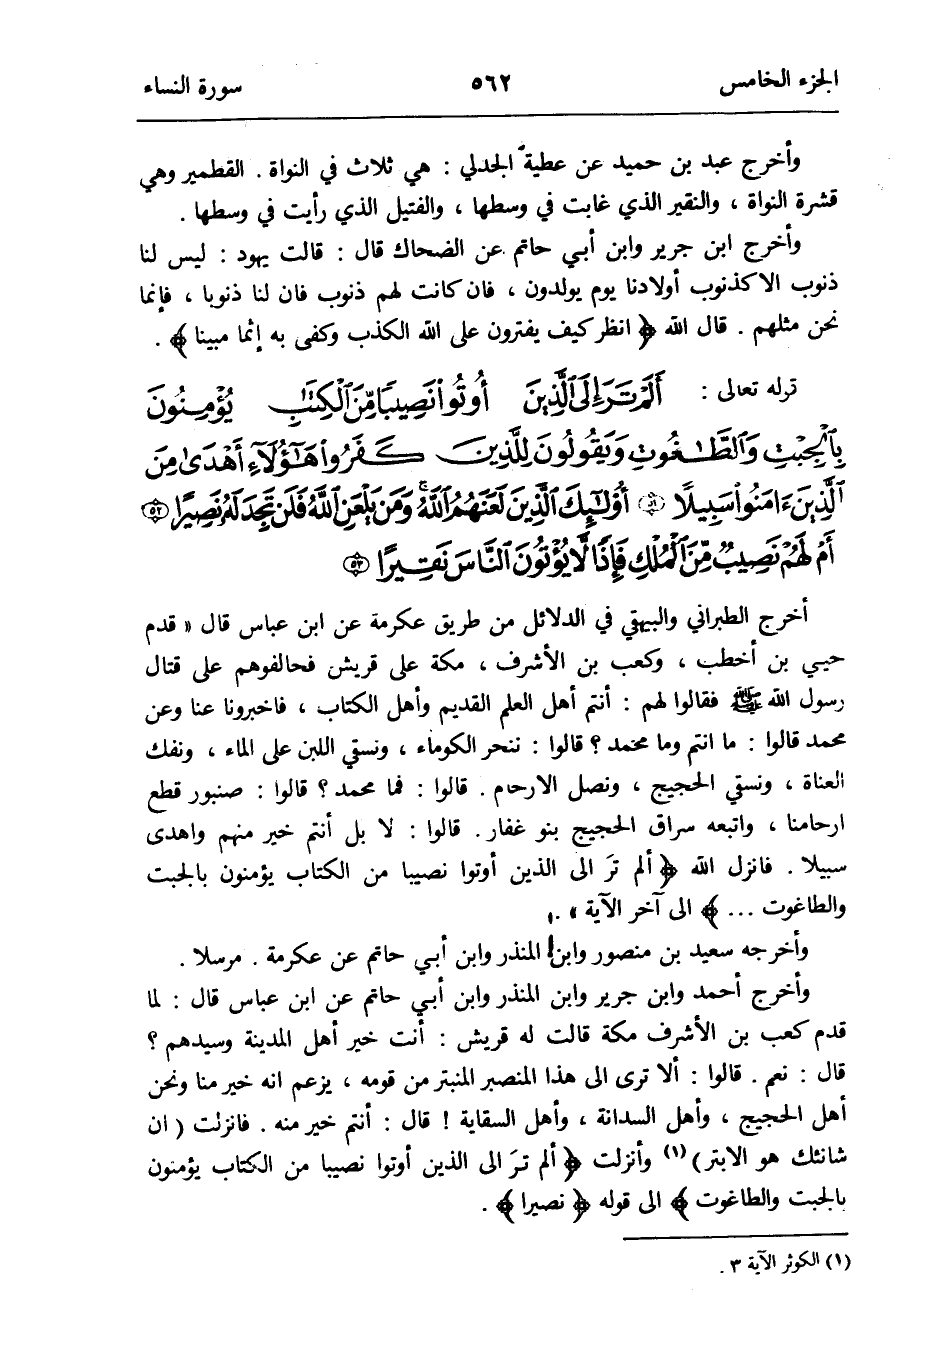 الجزء الخامس ٥٦٢ سورة النساء
وأخرج عبد بن حميد عن عطية الجدلي : هي ثلاث في النواة . القطمير وهي
قشرة النواة ، والنقير الذي غابت في وسطها ، والفتيل الذي رأيت في وسطها .
وأخرج ابن جرير وابن أبي حاتم عن الضحاك قال : قالت يهود : ليس لنا
ذنوب الا كذنوب أولادنا يوم يولدون ، فان كانت لهم ذنوب فان لنا ذنوبا ، فإنما
نحن مثلهم . قال الله ﴿ انظر كيف يفترون على الله الكذب وكفى به إثما مبينا ﴾ .
قوله تعالى : أَلَمْ تَرَ إِلَى ٱلَّذِينَ أُوتُوا۟ نَصِيبًا مِّنَ ٱلْكِتَٰبِ يُؤْمِنُونَ
بِٱلْجِبْتِ وَٱلطَّٰغُوتِ وَيَقُولُونَ لِلَّذِينَ كَفَرُوا۟ هَٰٓؤُلَآءِ أَهْدَىٰ مِنَ
ٱلَّذِينَ ءَامَنُوا۟ سَبِيلًا ﴿٥١﴾ أُو۟لَٰٓئِكَ ٱلَّذِينَ لَعَنَهُمُ ٱللَّهُ ۖ وَمَن يَلْعَنِ ٱللَّهُ فَلَن تَجِدَ لَهُۥ نَصِيرًا ﴿٥٢﴾
أَمْ لَهُمْ نَصِيبٌ مِّنَ ٱلْمُلْكِ فَإِذًا لَّا يُؤْتُونَ ٱلنَّاسَ نَقِيرًا ﴿٥٣﴾
أخرج الطبراني والبيهقي في الدلائل من طريق عكرمة عن ابن عباس قال « قدم
حيي بن أخطب ، وكعب بن الأشرف ، مكة على قريش فحالفوهم على قتال
رسول الله ﷺ فقالوا لهم : أنتم أهل العلم القديم وأهل الكتاب ، فاخبرونا عنا وعن
محمد قالوا : ما انتم وما محمد ؟ قالوا : ننحر الكوماء ، ونسقي اللبن على الماء ، ونفك
العناة ، ونسقي الحجيج ، ونصل الارحام . قالوا : فما محمد ؟ قالوا : صنبور قطع
ارحامنا ، واتبعه سراق الحجيج بنو غفار . قالوا : لا بل أنتم خير منهم واهدى
سبيلا . فانزل الله ﴿ ألم ترَ الى الذين أوتوا نصيبا من الكتاب يؤمنون بالجبت
والطاغوت ... ﴾ الى آخر الآية » .
وأخرجه سعيد بن منصور وابن المنذر وابن أبي حاتم عن عكرمة . مرسلا .
وأخرج أحمد وابن جرير وابن المنذر وابن أبي حاتم عن ابن عباس قال : لما
قدم كعب بن الأشرف مكة قالت له قريش : أنت خير أهل المدينة وسيدهم ؟
قال : نعم . قالوا : ألا ترى الى هذا المنصبر المنبتر من قومه ، يزعم انه خير منا ونحن
أهل الحجيج ، وأهل السدانة ، وأهل السقاية ! قال : أنتم خير منه . فانزلت ( ان
شانئك هو الابتر )(١) وأنزلت ﴿ ألم ترَ الى الذين أوتوا نصيبا من الكتاب يؤمنون
بالجبت والطاغوت ﴾ الى قوله ﴿ نصيرا ﴾ .
(١) الكوثر الآية ٣ .